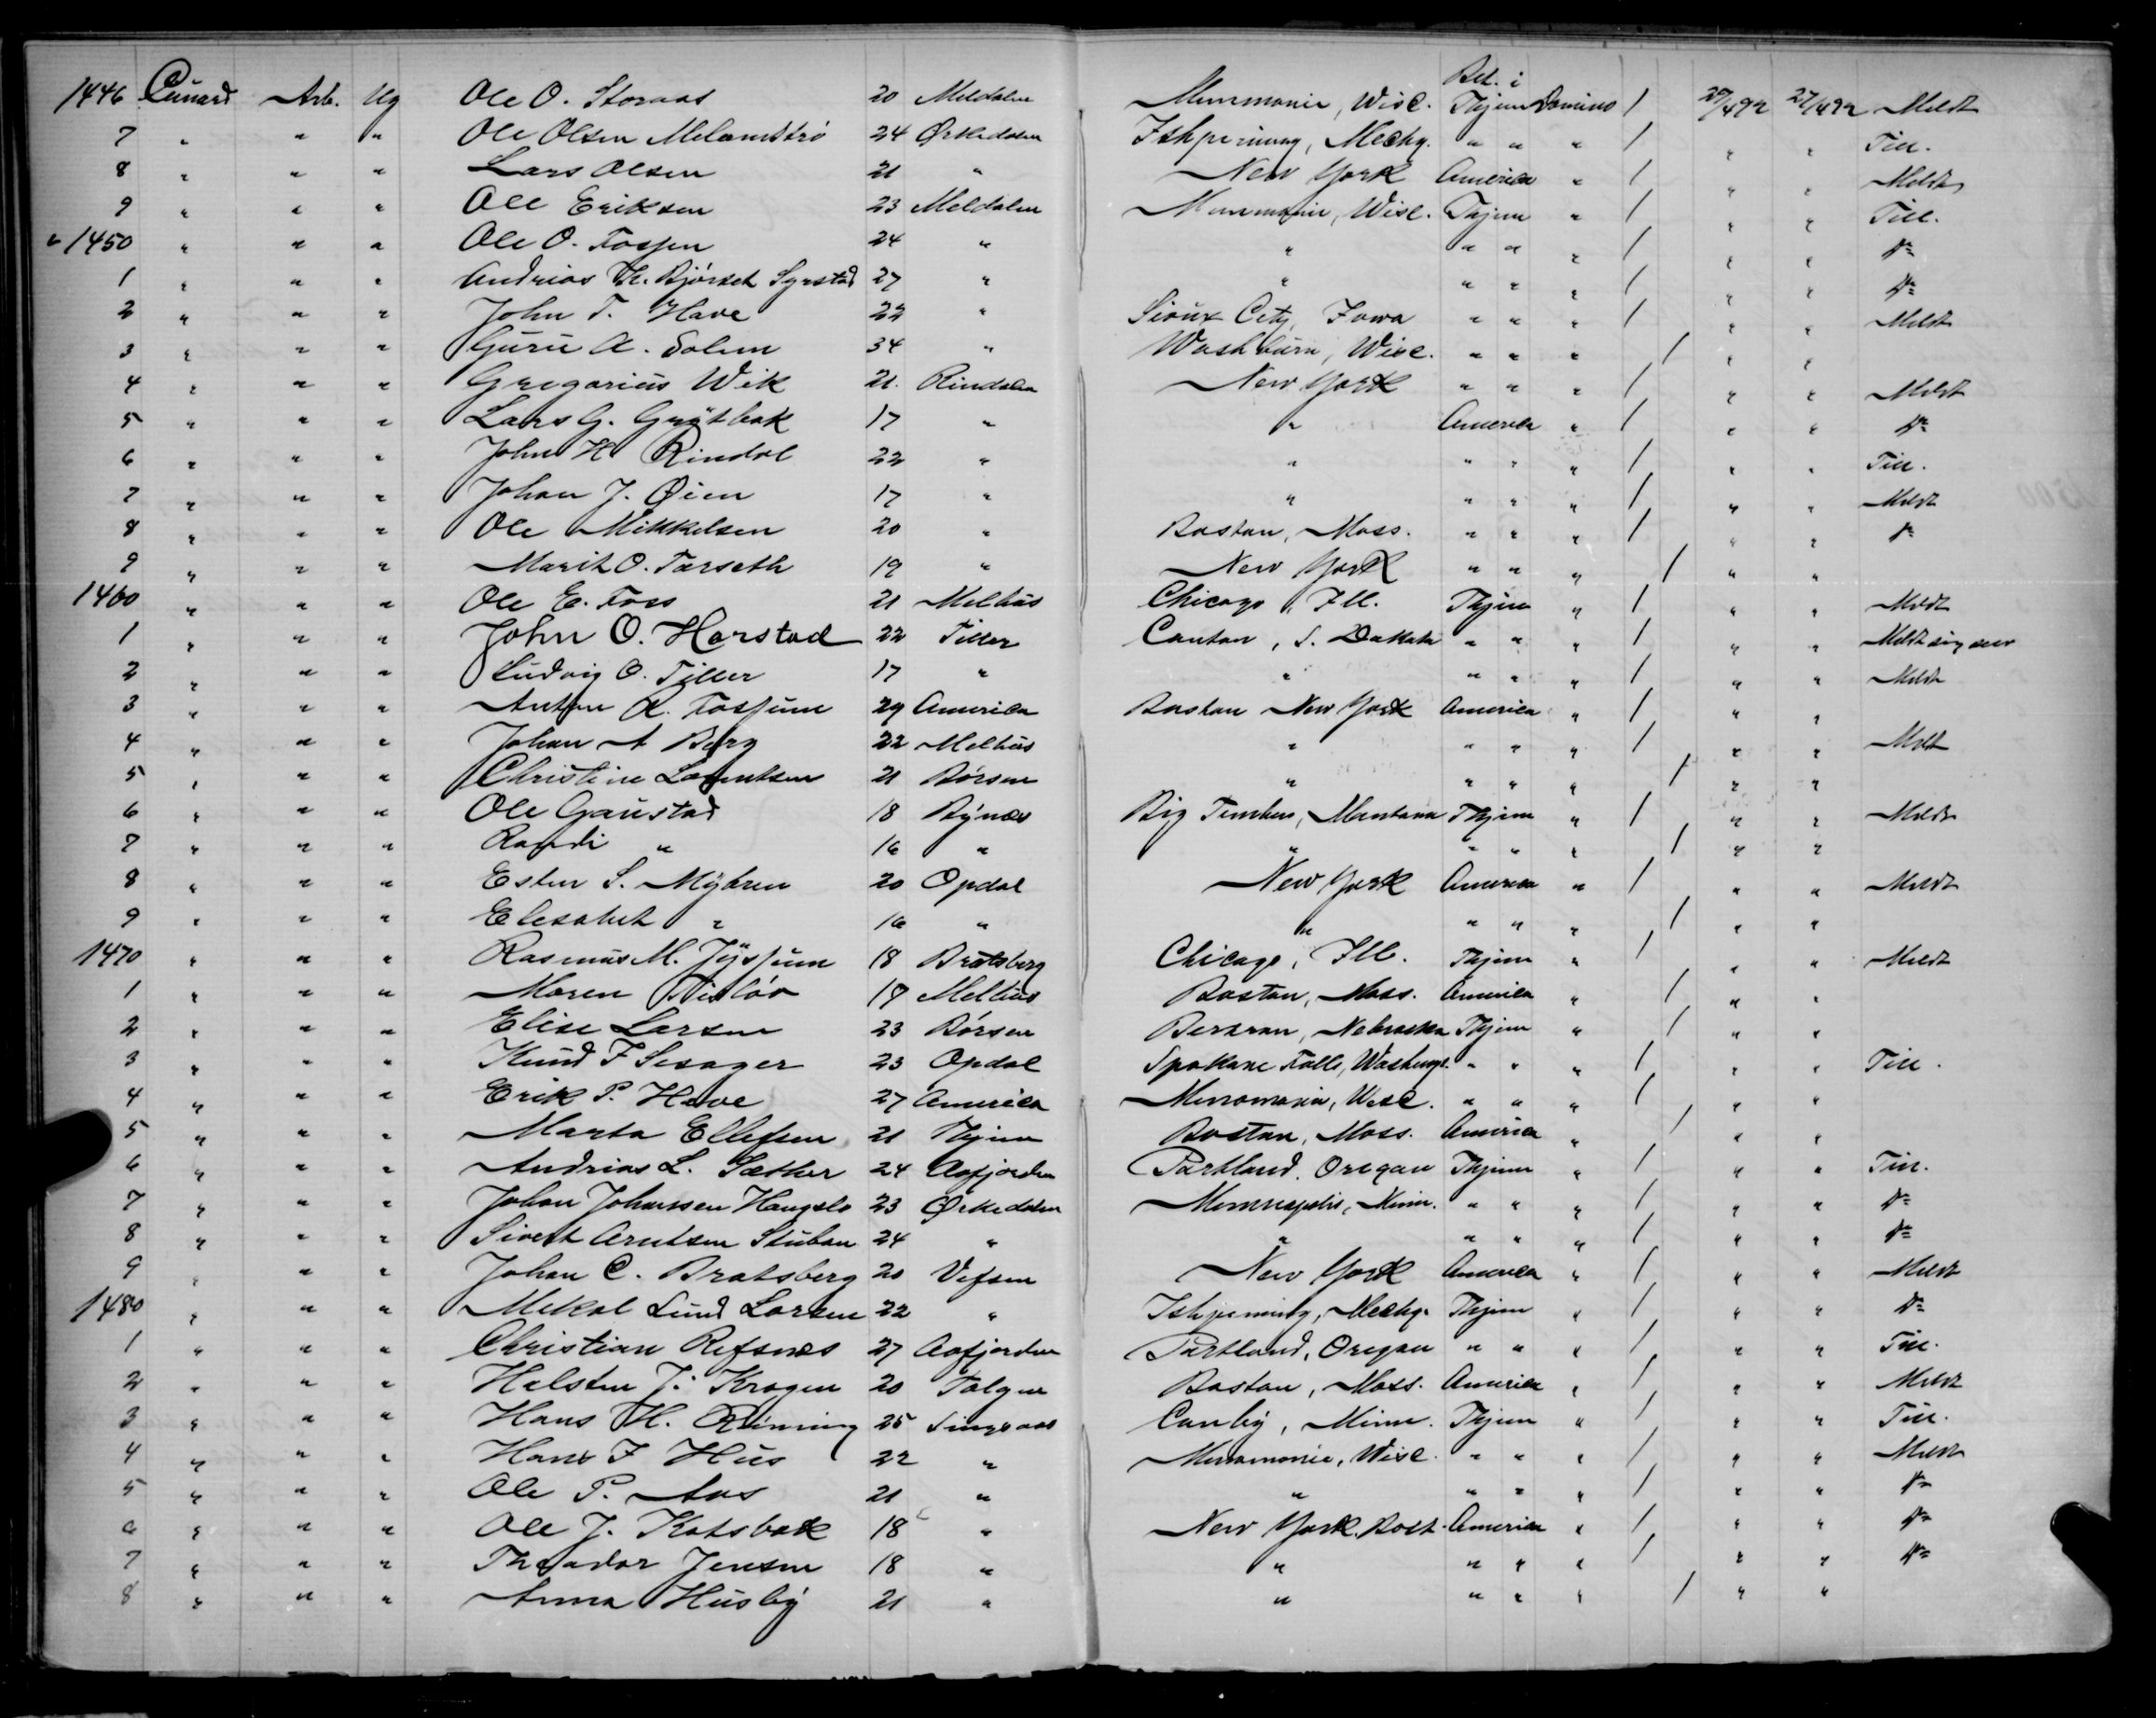 Bet. i
1446 Cunard Arb. Ug Ole O. Storaas 20 Meldalen Menmonie, Wisc. Thjem Domino / 27/4 92 27/4 92 Meldt
7 " " " Ole Olsen Melandströ 24 Ørkedalen Ishpeming, Mechg. " " " / " " Till.
8 " " " Lars Olsen 21 " New York America " / " " Meldt
9 " " " Ole Eriksen 23 Meldalen Menmonie, Wisc. Thjem " / " " Till.
1450 " " " Ole O. Fossen 24 " " " " " / " " do
1 " " " Andrias Th. Bjørset Syrstad 27 " " " " " / " " do
2 " " " John T. Have 22 " Sioux City, Iowa " " " / " " Meldt
3 " " " Guru A. Solem 34 " Washburn, Wisc. " " " / " "
4 " " " Gregorius Wik 21 Rindalen New York " " " / " " Meldt
5 " " " Lars G. Grytbak 17 " " America " / " " do
6 " " " John H. Rindal 22 " " " " " / " " Till.
7 " " " Johan J. Øien 17 " " " " " / " " Meldt
8 " " " Ole Mikkelsen 20 " Boston, Mass. " " " / " " do
9 " " " Marit O. Tørseth 19 " New York " " " / " "
1460 " " " Ole E. Foss 21 Melhus Chicago, Ill. Thjem " / " " Meldt
1 " " " John O. Harstad 22 Tiller Canton, S. Dakota " " " / " " Meldt sig
2 " " " Ludvig O. Tiller 17 " " " " " / " " Meldt
3 " " " Anton A. Fossum 29 America Boston New York America " / " "
4 " " " Johan A Berg 22 Melhus " " " " / " " Meldt
5 " " " Christine Lorentsen 21 Börsen " " " " / " "
6 " " " Ole Gaustad 18 Bynæs Big Timber, Montana Thjem " / " " Meldt
7 " " " Randi " 16 " " " " " / " "
8 " " " Esten S. Myhren 20 Opdal New York America " / " " Meldt
9 " " " Elesabet " 16 " " " " " / " "
1470 " " " Rasmus M. 18 Bratsberg Chicago, Ill. Thjem " / " " Meldt
1 " " " Maren 19 Melhus Boston, Mass. America " / " "
2 " " " Elise Larsen 23 Börsen Nebraska Thjem " / " "
3 " " " Knud F Sesager 23 Opdal Spokane Falls, Washingt. " " " / " " Till.
4 " " " Erik P. Have 27 America Menomonie, Wisc. " " " / " "
5 " " " Marta Ellefsen 21 Thjem Boston, Mass. America " / " "
6 " " " Andrias L. Sæther 24 Aafjorden Portland, Oregon Thjem " / " " Till.
7 " " " Johan Johnssen Haugslo 23 Ørkedalen Minneapolis, Minn. " " " / " " do
8 " " " Sivert Arntsen Stuban 24 " " " " " / " " do
9 " " " Johan C. Bratsberg 20 Vefsen New York America " / " " Meldt
1480 " " " Mikal Lund Larsen 22 " Ishpeming, Mechg. Thjem " / " " do
1 " " " Christian Refsnæs 27 Aafjorden Portland, Oregon " " " / " " Till.
2 " " " Halsten J. Krogen 20 Tolgen Boston, Mass. America " / " " Meldt
3 " " " Hans H. Rönning 25 Singsaas Canby, Minn. Thjem " / " " Till.
4 " " " Hans F Hus 22 " Menomonie, Wisc. " " " / " " Meldt
5 " " " Ole P. Aas 21 " " " " " / " " do
6 " " " Ole J. Kotsbak 18 " New York, Bost. America " / " " do
7 " " " Theodor Jensen 18 " " " " " / " " do
8 " " " Anna Husby 21 " " " " " / " "